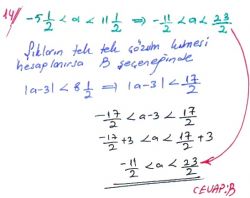 14) -5 1/2 < a < 11 1/2 ⇒ -11/2 < a < 23/2
Şıkların tek tek çözüm kümesi
hesaplanırsa B seçeneğinde
|a-3| < 8 1/2 ⇒ |a-3| < 17/2
-17/2 < a-3 < 17/2
-17/2 + 3 < a < 17/2 + 3
-11/2 < a < 23/2
CEVAP:B